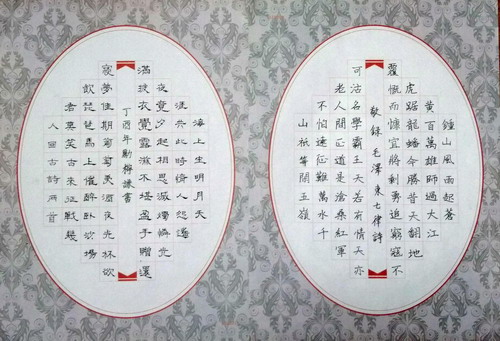 鍾山風雨起蒼
黃百萬雄師過大江
虎踞龍蟠今勝昔天翻地
覆慨而慷宜將剩勇追窮寇不
敬錄毛澤東七律詩
可沽名學霸王天若有情天亦
老人間正道是滄桑紅軍
不怕遠征難萬水千
山祇等閑五嶺
海上生明月天
涯共此時情人怨遙
夜竟夕起相思滅燭憐光
滿披衣覺露滋不堪盈手贈還
丁酉年書
寢夢佳期葡萄美酒夜光杯欲
飲琵琶馬上催醉臥沙場
君莫笑古來征戰幾
人回古詩兩首